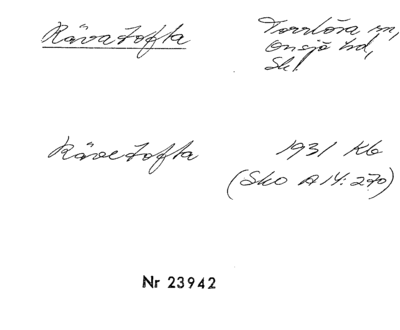 Rävatofta Torrlösa sn,
Onsjö hd,
Sk.
Rävetofta 1931 Kb
(Sko A14: 270)
Nr 23942